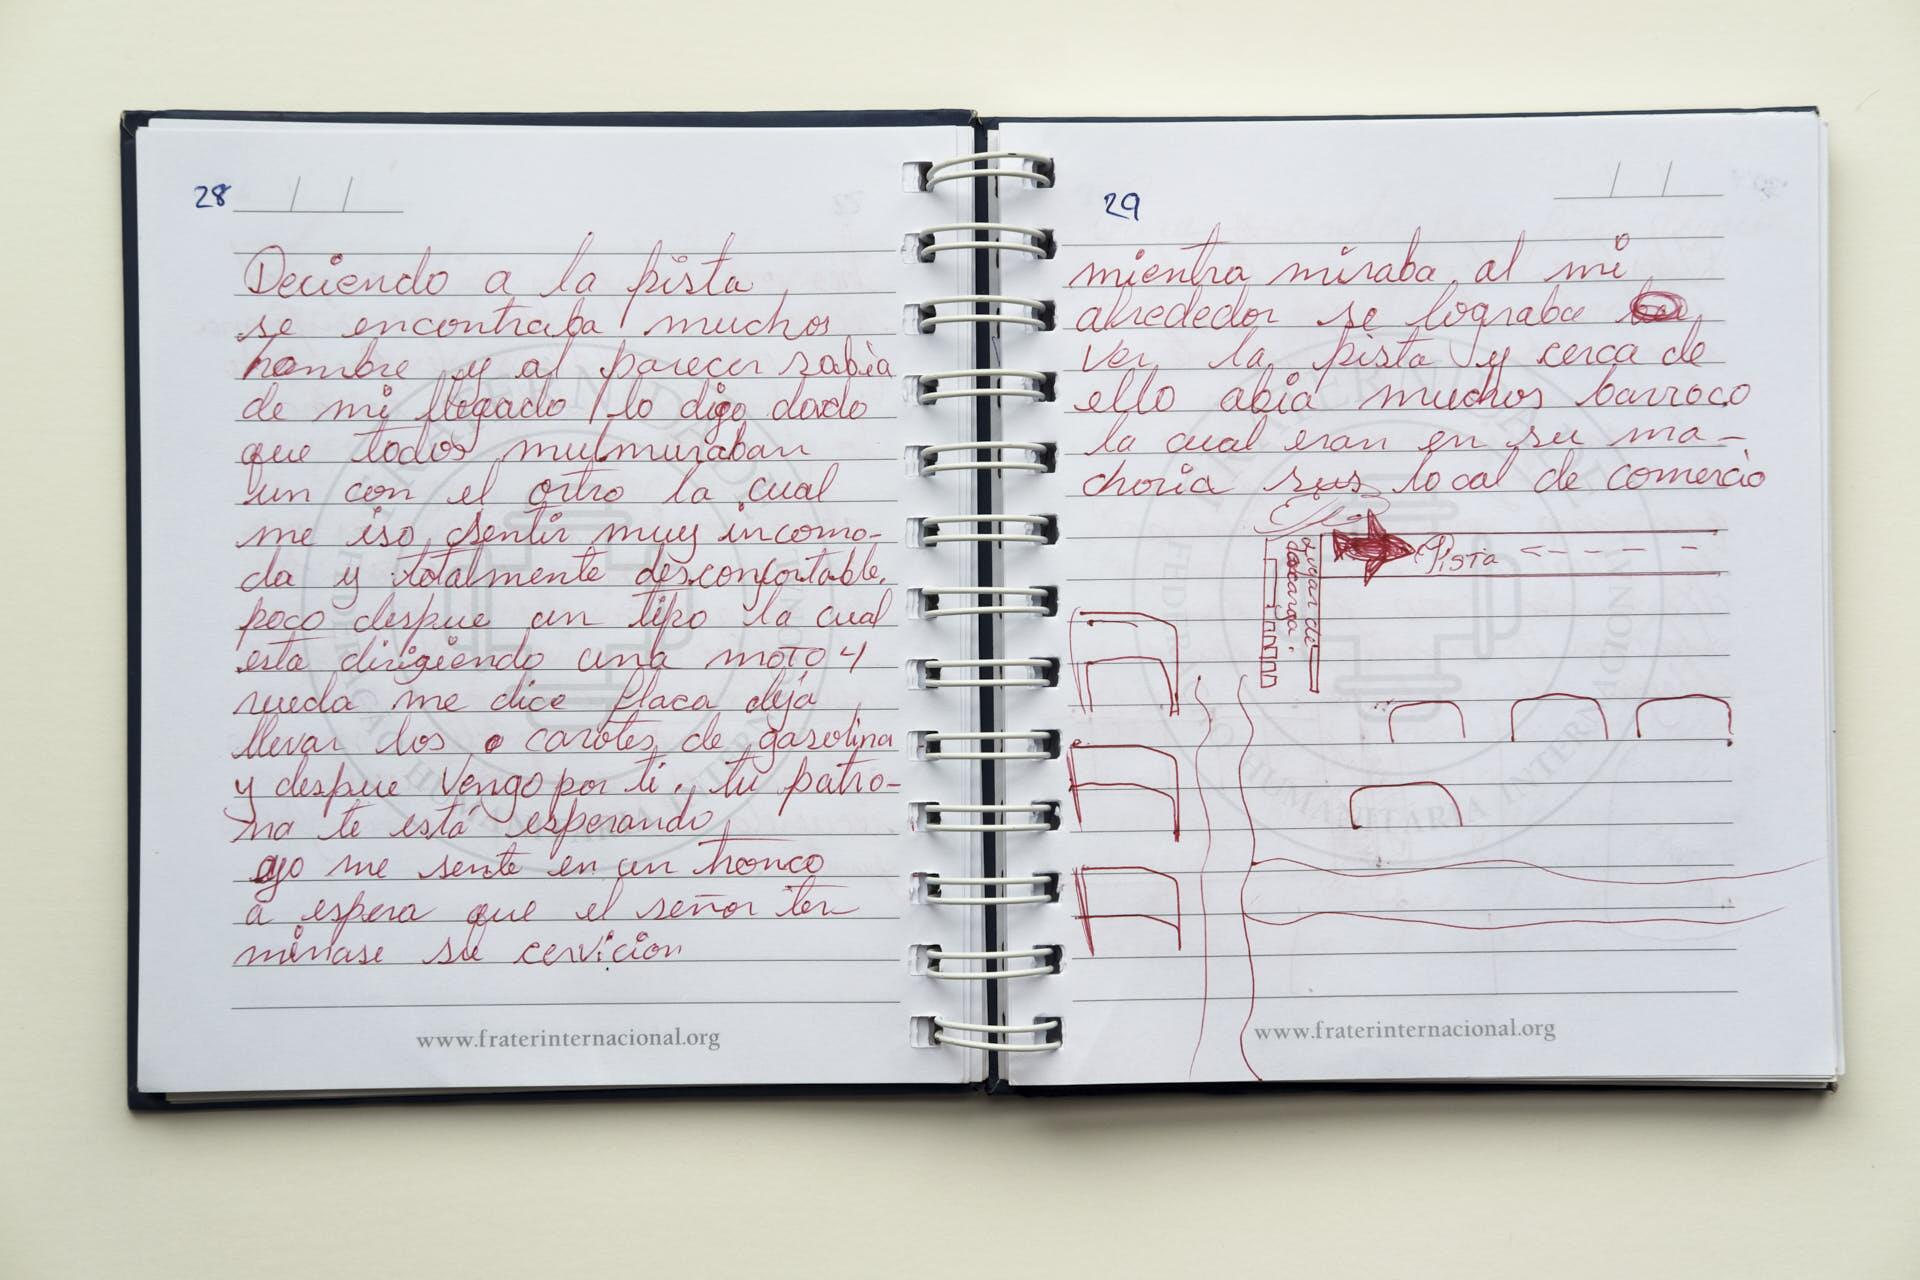 28
Deciendo a la pista
se encontraba muchos
hombre y al parecer sabia
de mi llegado lo digo dado
que todos mulmuraban
un con el ortro la cual
me iso sentir muy incomo-
da y totalmente desconfortable.
poco despue un tipo la cual
esta dirigiendo una moto 4
rueda me dice flaca deja
llevar los carotes de gasolina
y despue vengo por ti. tu patro-
na te está esperando
yo me sente en un tronco
a espera que el señor ter-
minase su cervicion
www.fraterinternacional.org
29
mientra miraba al mi
alrededor se lograba
ver la pista y cerca de
ello abia muchos barroco
la cual eran en su ma-
choria sus local de comercio
lugar de
dascarga.
Pista
www.fraterinternacional.org